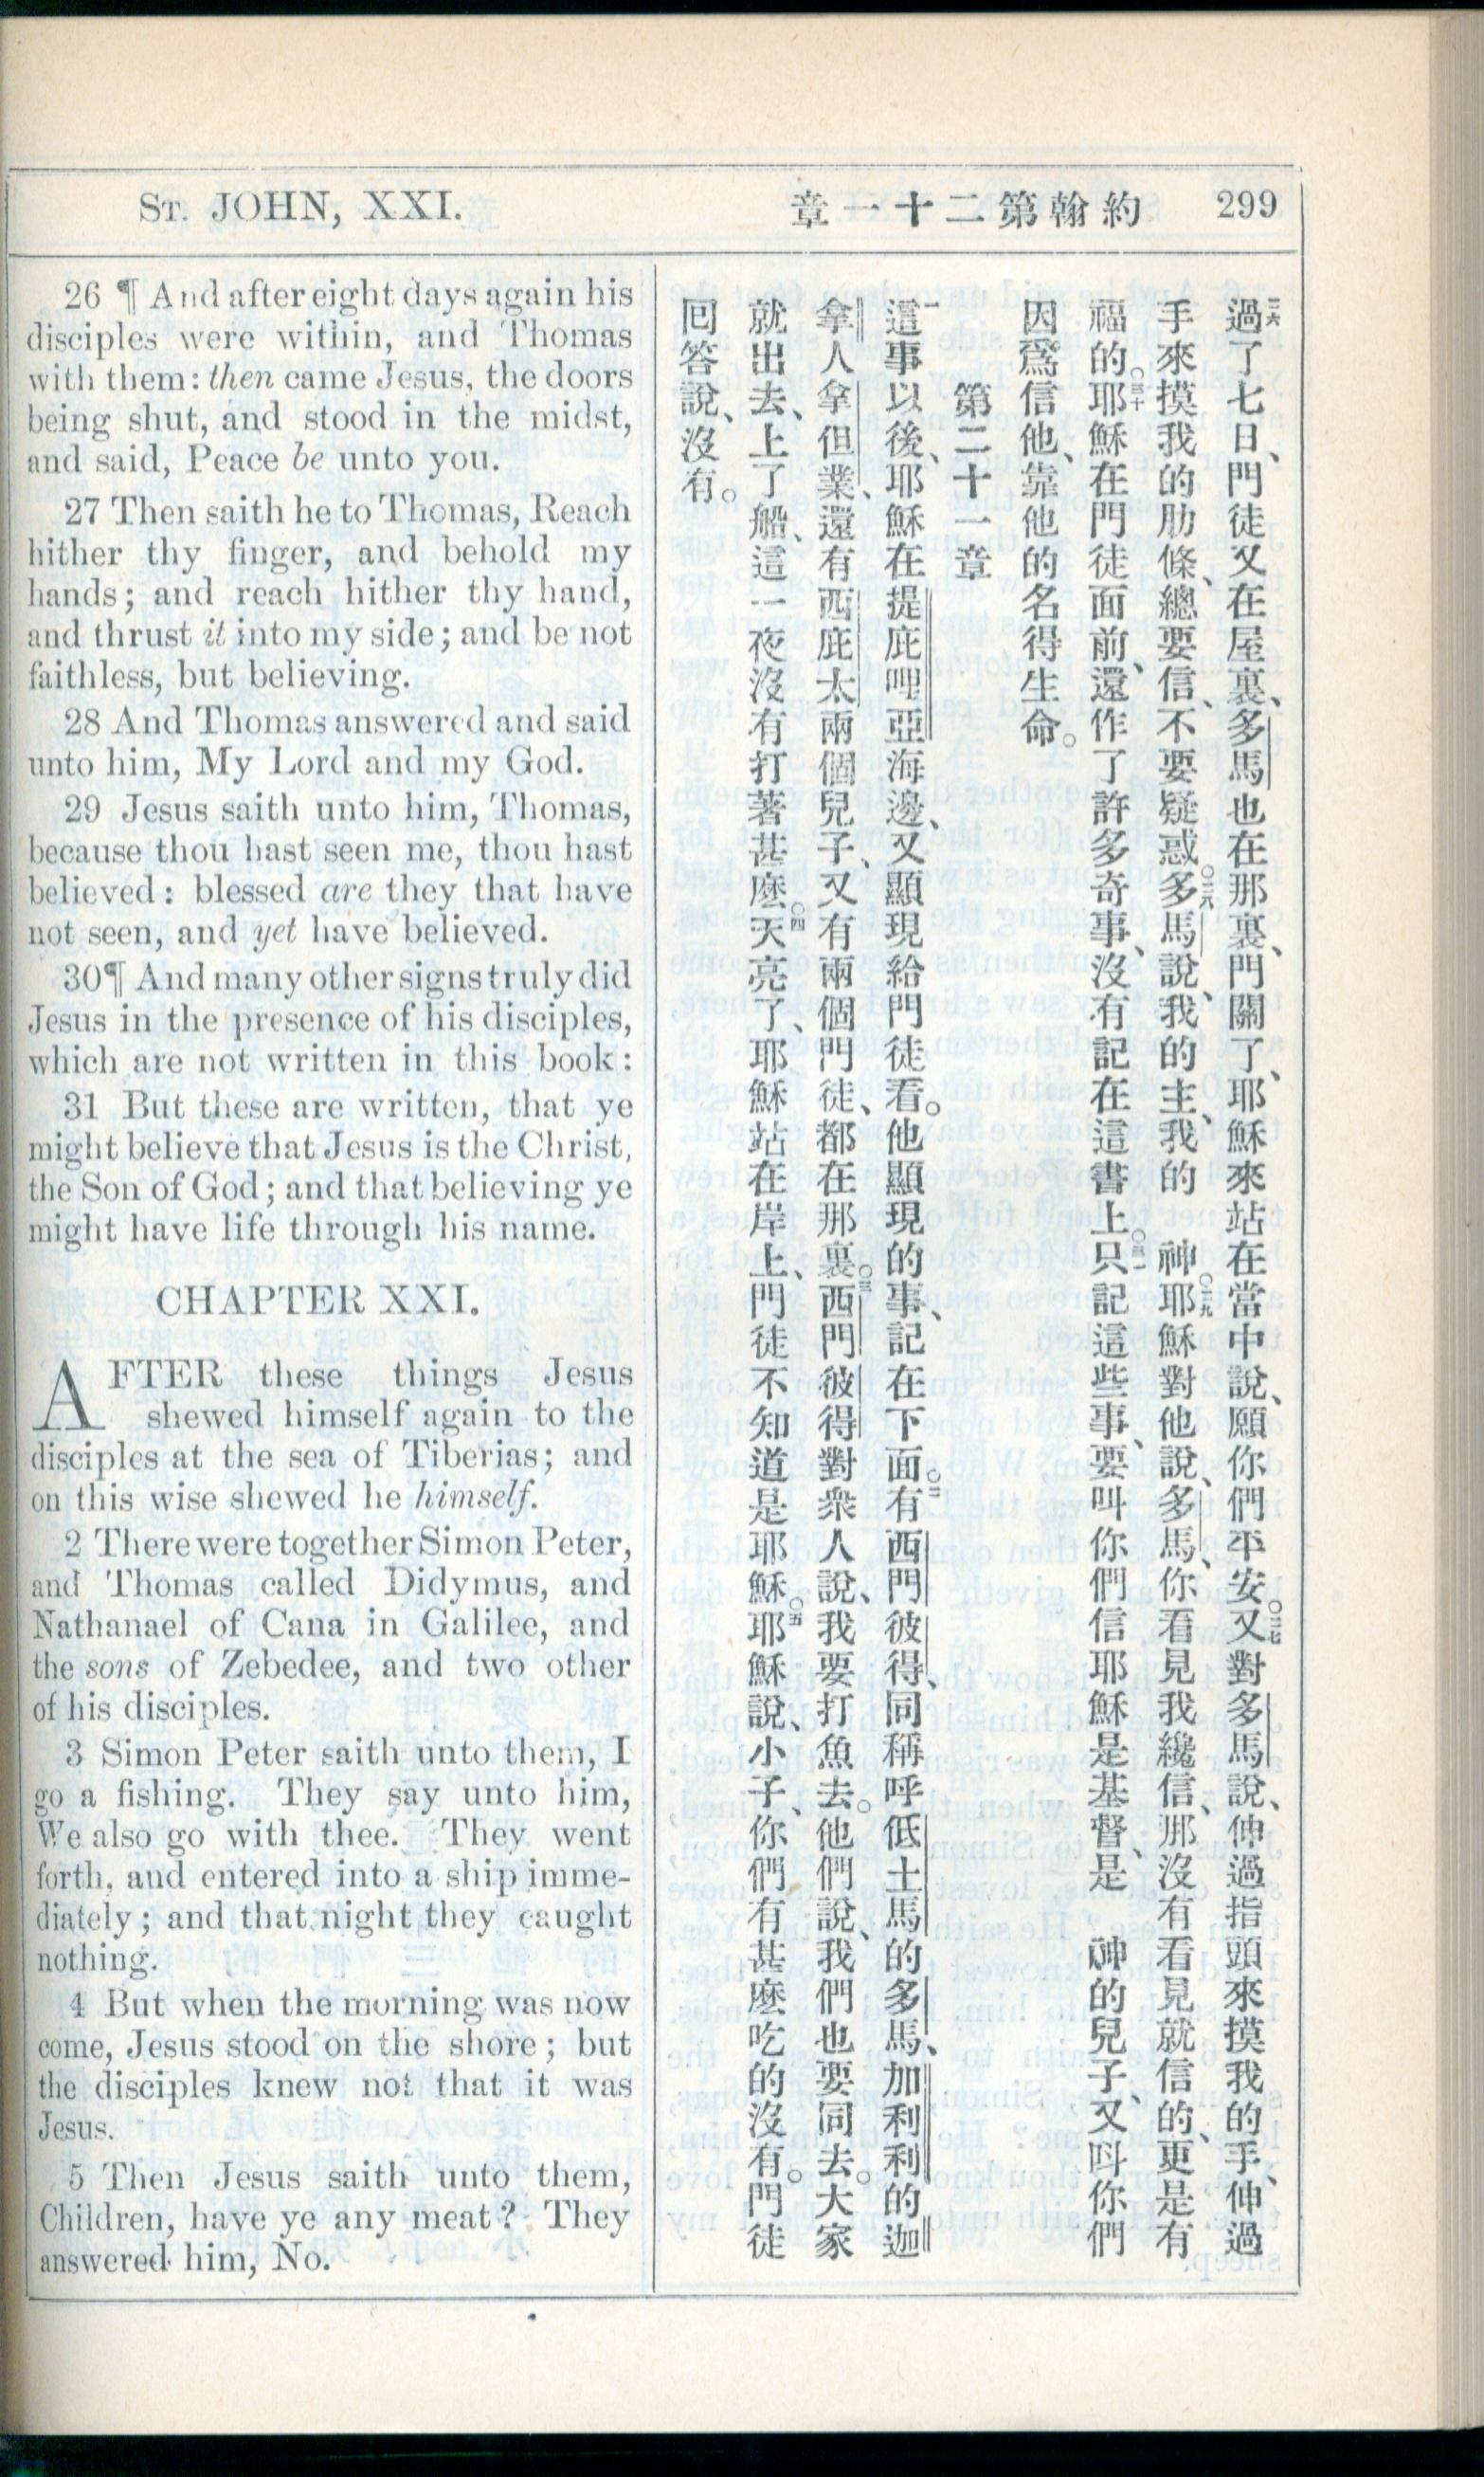 ST. JOHN, XXI.
約翰第二十一章 299
26 ¶ And after eight days again his
disciples were within, and Thomas
with them: then came Jesus, the doors
being shut, and stood in the midst,
and said, Peace be unto you.
27 Then saith he to Thomas, Reach
hither thy finger, and behold my
hands; and reach hither thy hand,
and thrust it into my side; and be not
faithless, but believing.
28 And Thomas answered and said
unto him, My Lord and my God.
29 Jesus saith unto him, Thomas,
because thou hast seen me, thou hast
believed: blessed are they that have
not seen, and yet have believed.
30 ¶ And many other signs truly did
Jesus in the presence of his disciples,
which are not written in this book:
31 But these are written, that ye
might believe that Jesus is the Christ,
the Son of God; and that believing ye
might have life through his name.
CHAPTER XXI.
AFTER these things Jesus
shewed himself again to the
disciples at the sea of Tiberias; and
on this wise shewed he himself.
2 There were together Simon Peter,
and Thomas called Didymus, and
Nathanael of Cana in Galilee, and
the sons of Zebedee, and two other
of his disciples.
3 Simon Peter saith unto them, I
go a fishing. They say unto him,
We also go with thee. They went
forth, and entered into a ship imme-
diately; and that night they caught
nothing.
4 But when the morning was now
come, Jesus stood on the shore; but
the disciples knew not that it was
Jesus.
5 Then Jesus saith unto them,
Children, have ye any meat? They
answered him, No.
二六過了七日、門徒又在屋裏、多馬也在那裏、門關了、耶穌來站在當中說、願你們平安。二七又對多馬說、伸過指頭來摸我的手、伸過
手來摸我的肋條、總要信、不要疑惑。二八多馬說、我的主、我的 神。二九耶穌對他說、多馬、你看見我纔信、那沒有看見就信的、更是有
福的。三十耶穌在門徒面前、還作了許多奇事、沒有記在這書上。三一只記這些事、要叫你們信耶穌是基督、是 神的兒子、又叫你們
因爲信他、靠他的名得生命。
第二十一章
一這事以後、耶穌在提庇哩亞海邊、又顯現給門徒看。他顯現的事、記在下面。二有西門彼得、同稱呼低土馬的多馬、加利利的迦
拿人拿但業、還有西庇太兩個兒子、又有兩個門徒、都在那裏。三西門彼得對衆人說、我要打魚去。他們說、我們也要同去。大家
就出去、上了船、這一夜沒有打著甚麽。四天亮了、耶穌站在岸上、門徒不知道是耶穌。五耶穌說、小子、你們有甚麽吃的沒有。門徒
回答說、沒有。